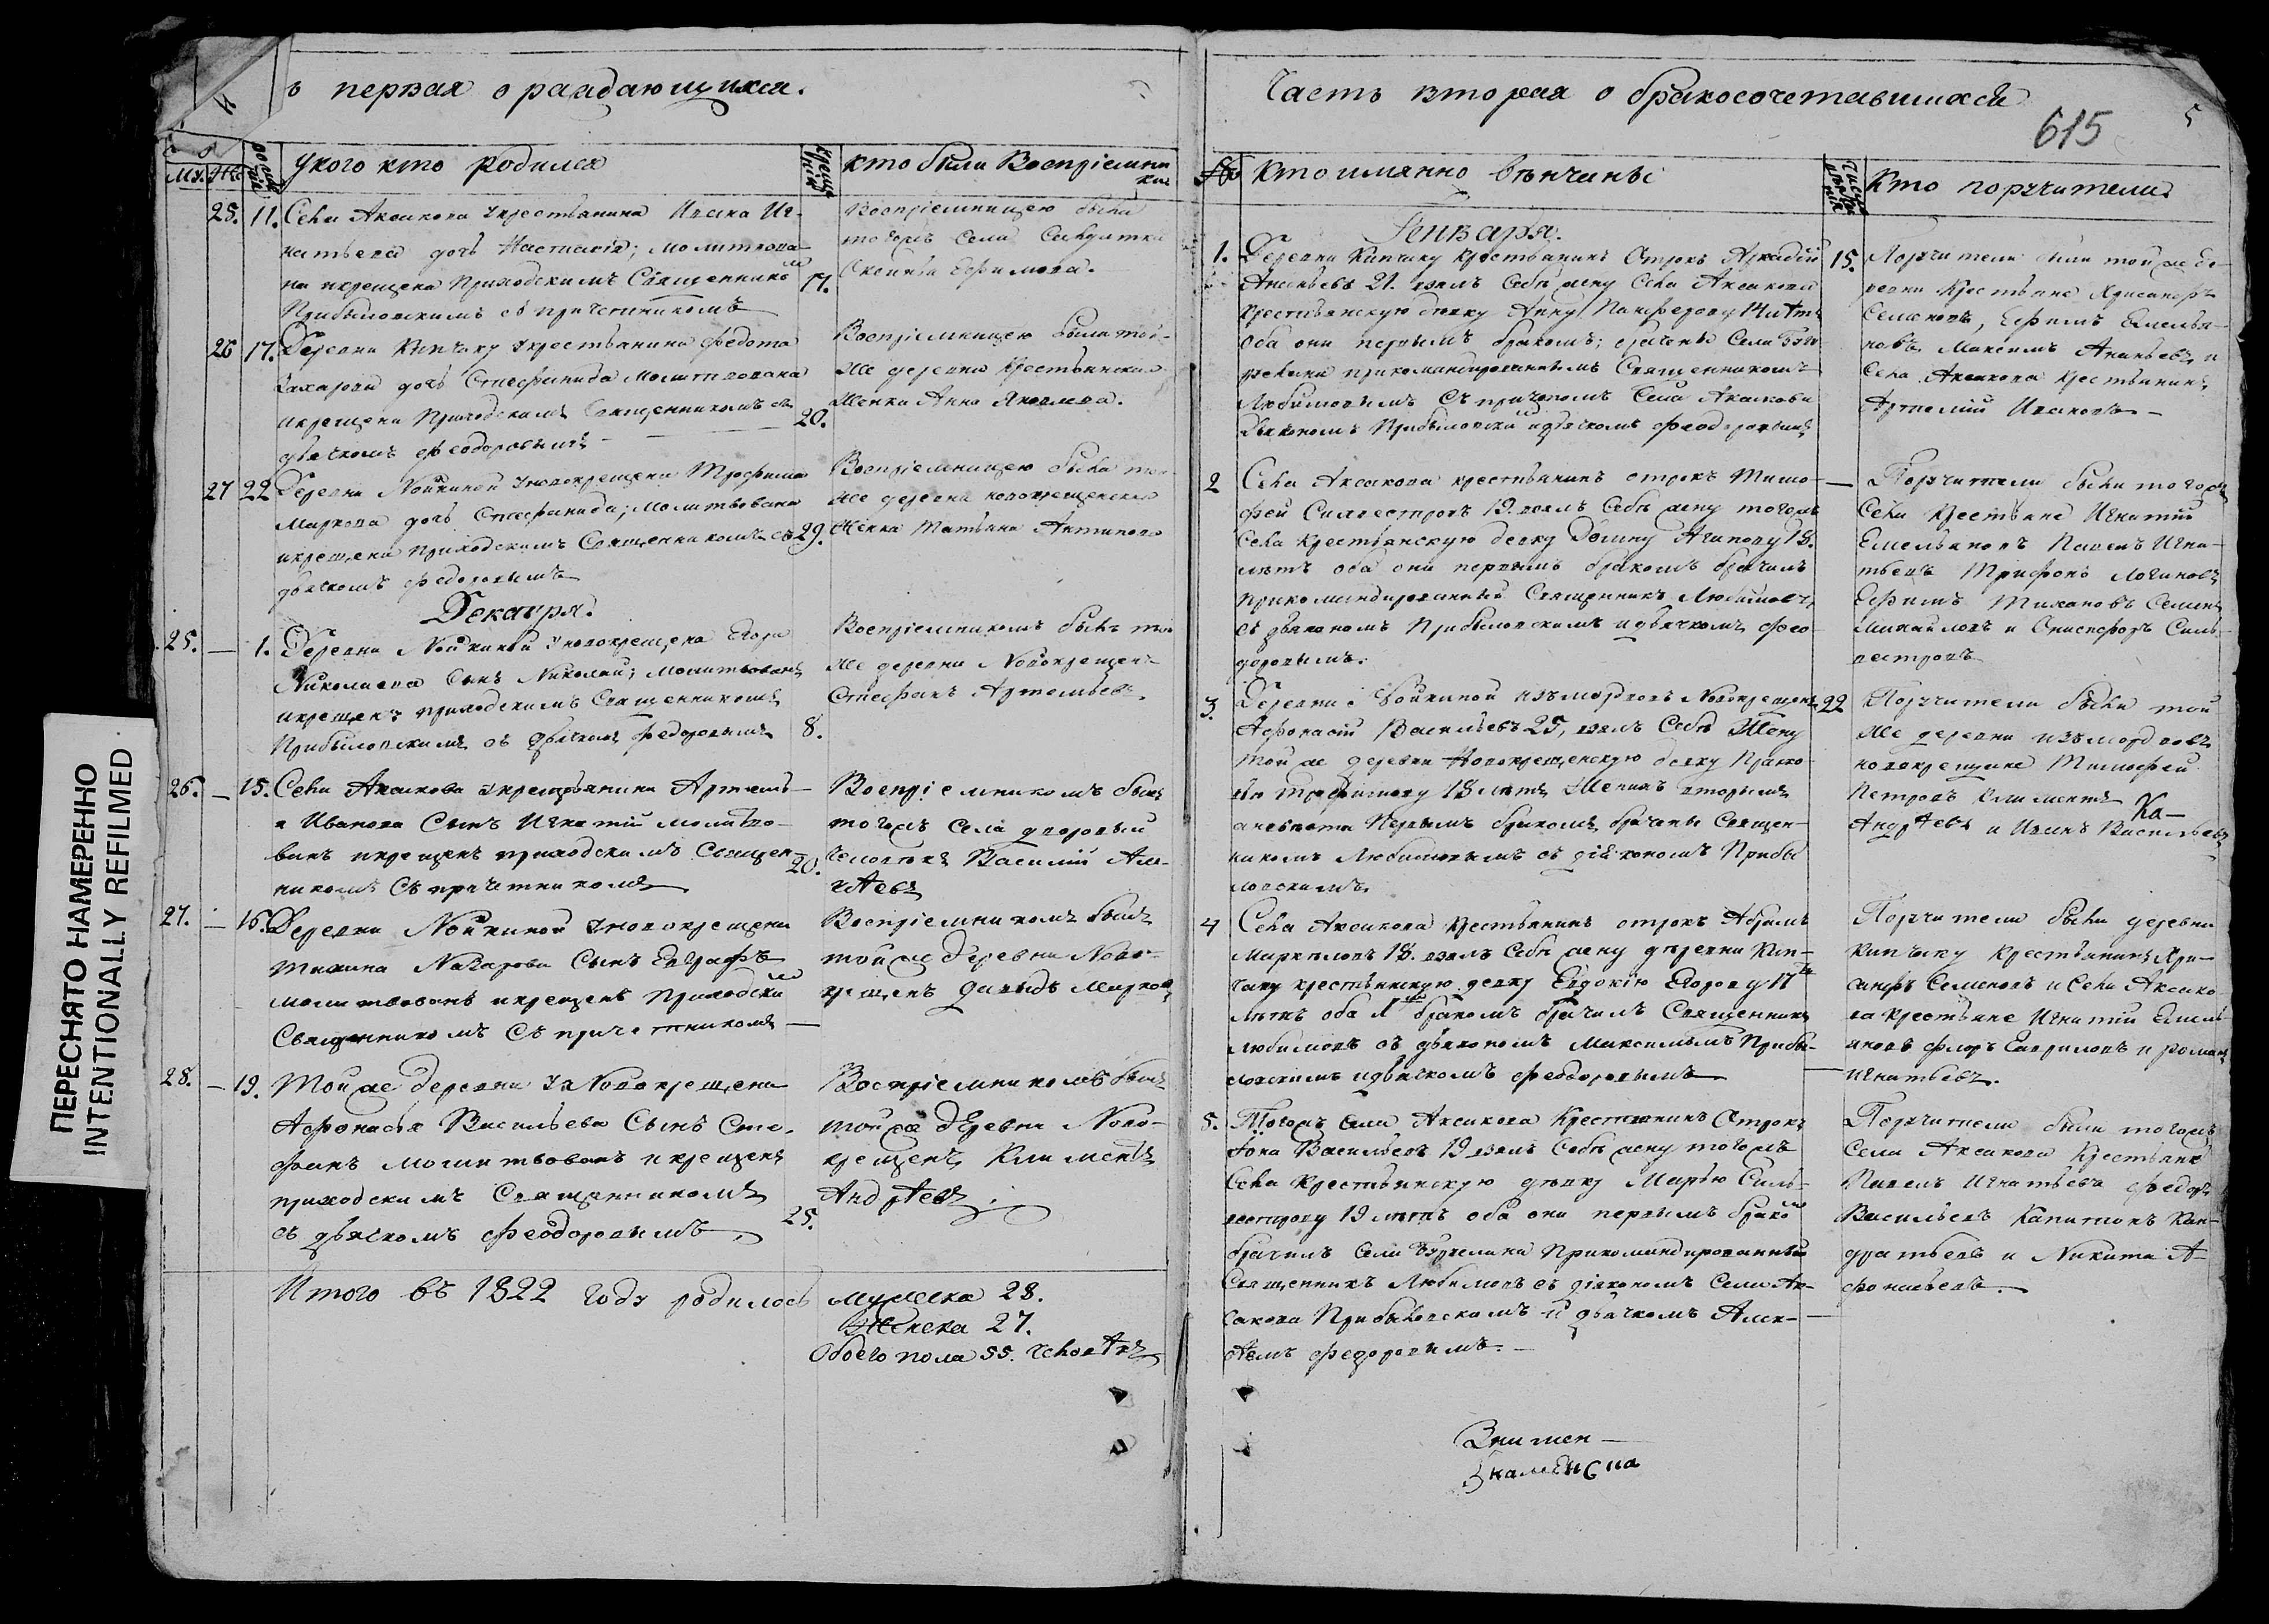 ПЕРЕСНЯТО НАМЕРЕННО
INTENTIONALLY REFILMED
ъ первая о раждающихся.
Му. Же.
у кого кто родился
кто были Воспріемники
25. 11. Села Аксакова у крестьянина Ивана Иг-
натьева дочь Настасія; молитвова-
на и крещена Приходскимъ Священникомъ
Прибыловскимъ съ причетникомъ
Воспріемницею была
тогожъ Села
Ефимова.
17.
26 17. Деревни Кипчаку у крестьянина Федота
Захарова дочь Стефанида Молитвована
и крещена Приходскимъ Священникомъ съ
дьячкомъ Феодоровымъ
Воспріемницею была той-
же деревни Крестьянская
Женка Анна Яковлева.
20.
27 22 Деревни Нойкиной у новокрещена Трофима
Маркова дочь Стефанида; Молитвована
и крещена Приходскимъ Священникомъ съ
дьячкомъ Федоровымъ
Воспріемницею была той
же деревни новокрещенская
Женка Татьяна Антипова
29.
Декабря.
25. — 1. Деревни Нойкиной у новокрещена Егора
Николаева Сынъ Николай; Молитвованъ
и крещенъ приходскимъ Священникомъ
Прибыловскимъ съ Дьячкомъ Федоровымъ
Воспріемникомъ былъ той
же деревни Новокрещенъ
Стефанъ Артемьевъ
8.
26. — 15. Села Аксакова у крестьянина Артемь-
я Иванова Сынъ Игнатій молитво-
ванъ и крещенъ приходскимъ Священ
никомъ Съ причетникомъ
Воспріемникомъ былъ
тогожъ Села дворовый
человѣкъ Василій Але-
ксѣевъ
20.
27. — 16. Деревни Нойкиной у новокрещена
Тихона Назарова Сынъ Евграфъ
молитвованъ и крещенъ Приходскимъ
Священникомъ Съ причетникомъ —
Воспріемникомъ былъ
той же деревни Ново-
крещенъ Давыдъ Марковъ
28. — 19. Той же деревни у Новокрещена
Афонасья Васильева Сынъ Сте-
фанъ молитвованъ и крещенъ
приходскимъ Священникомъ
съ дьячкомъ Феодоровымъ
Воспріемникомъ былъ
той же деревни Ново-
крещенъ Климентъ
Андрѣевъ
25.
Итого въ 1822 году родилось мужеска 28.
Женска 27.
Обоего пола 55. человѣкъ
Часть вторая о бракосочетавшихся
615
5
Кто имянно вѣнчаны
Кто поручители
Генваря.
1. Деревни Кипчаку крестьянинъ Отрокъ Аркадій
Ананьевъ 21. взялъ Себѣ жену Села Аксакова
Крестьянскую девку Анну Панферову 14 лѣтъ
Оба они первымъ бракомъ; брачены Села
прикомандированнымъ Священникомъ
Любимовымъ Съ причтомъ Села Аксакова
Дьякономъ Прибыловскимъ и дьячкомъ Феодоровымъ
15. Поручители были той же де-
ревни Крестьяне Хрисанфъ
Семеновъ, Ефимъ Емелья-
новъ Максимъ Ананьевъ и
Села Аксакова Крестьянинъ
Артемій Ивановъ —
2 Села Аксакова крестьянинъ отрокъ Тимо-
фей Силвестровъ 19. взялъ Себѣ жену тогожъ
Села Крестьянскую девку Домну Агапову 18.
лѣтъ оба они первымъ бракомъ брачилъ
Прикомандированный Священникъ Любимовъ
съ дьякономъ Прибыловскимъ и дьячкомъ Фео-
доровымъ.
— Поручители были тогожъ
Села Крестьяне Игнатій
Емельяновъ Павелъ Игна-
тьевъ Трифонъ Логиновъ
Ефимъ Тихановъ Семенъ
Михайловъ и Онисифоръ Силь-
вестровъ
3. Деревни Нойкиной изъ мордовъ Новокрещенъ
Афонасій Васильевъ 25, взялъ Себѣ Жену
той же деревни Новокрещенскую девку Праско-
вью Трофимову 18 лѣтъ Женихъ вторымъ
а невѣста Первымъ бракомъ, брачены Священ-
никомъ Любимовымъ съ діякономъ Прибы
ловскимъ.
22 Поручители были той
же деревни изъ мордовъ
новокрещане Тимофей
Петровъ Климентъ
Андрѣевъ и Иванъ Васильевъ
4 Села Аксакова Крестьянинъ отрокъ Абрамъ
Маркеловъ 18. взялъ Себѣ жену деревни Кип-
чаку крестьянскую девку Евдокію Егорову 17
лѣтъ оба 1мъ бракомъ брачилъ Священникъ
Любимовъ съ дьякономъ Максимомъ Прибы-
ловскимъ и дьячкомъ Феодоровымъ —
Поручители были деревни
Кипчаку Крестьянинъ Хри-
санфъ Семеновъ и Села Аксако-
ва крестьяне Игнатій Емель-
яновъ Флоръ Гавриловъ и Романъ
Игнатьевъ.
5. Тогожъ Села Аксакова Крестьянинъ Отрокъ
Фока Васильевъ 19 взялъ Себѣ жену тогожъ
Села Крестьянскую дѣвку Марью Силь-
вестрову 19 лѣтъ оба они первымъ бракомъ
брачилъ Села Прикомандированный
Священникъ Любимовъ съ діякономъ Села Ак-
сакова Прибыловскимъ и дьячкомъ Алек-
сѣемъ Федоровымъ. —
Поручители были тогожъ
Села Аксакова Крестьяне
Павелъ Игнатьевъ Федоръ
Васильевъ Капитонъ Кон-
дратьевъ и Никита А-
фонасьевъ.